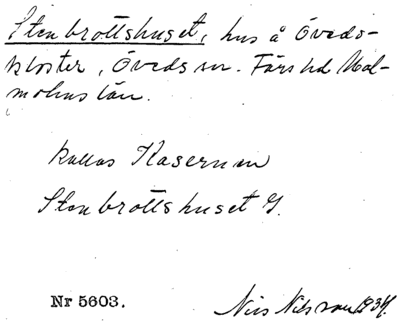 Stenbrottshuset, hus å Öveds-
kloster, Öveds sn. Färs hd Mal-
möhus län.
kallas Kasernen
Stenbrottshuset
Nr 5603.
Nils Nilsson 1934.